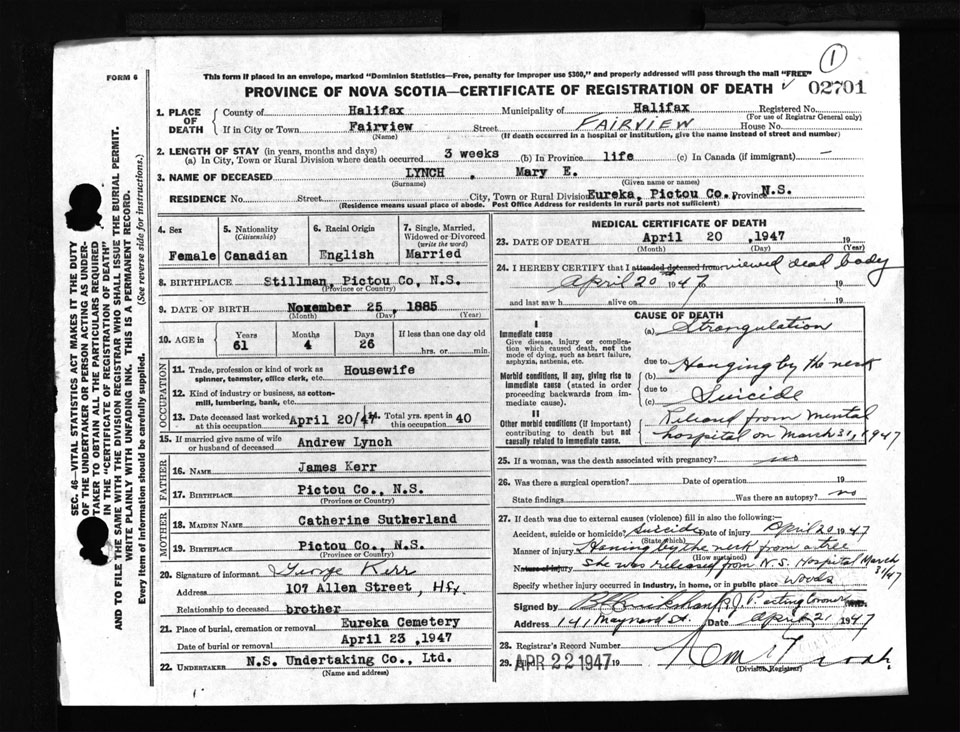 1
FORM 6
This form if placed in an envelope, marked "Dominion Statistics—Free, penalty for improper use $300," and properly addressed will pass through the mail "FREE"
PROVINCE OF NOVA SCOTIA—CERTIFICATE OF REGISTRATION OF DEATH 02701
1. PLACE OF DEATH County of Halifax Municipality of Halifax Registered No.
(For use of Registrar General only)
If in City or Town Fairview Street FAIRVIEW House No.
(Name) (If death occurred in a hospital or institution, give the name instead of street and number)
2. LENGTH OF STAY (in years, months and days)
(a) In City, Town or Rural Division where death occurred 3 weeks (b) In Province life (c) In Canada (if immigrant) —
3. NAME OF DECEASED LYNCH , Mary E.
(Surname) (Given name or names)
RESIDENCE No. Street City, Town or Rural Division Eureka, Pictou Co., Province N.S.
(Residence means usual place of abode. Post Office Address for residents in rural parts not sufficient)
4. Sex 5. Nationality (Citizenship) 6. Racial Origin 7. Single, Married, Widowed or Divorced (write the word)
Female Canadian English Married
8. BIRTHPLACE Stillman, Pictou Co, N.S.
(Province or Country)
9. DATE OF BIRTH November 25, 1885
(Month) (Day) (Year)
10. AGE in Years Months Days If less than one day old
61 4 26 hrs. or min.
OCCUPATION
11. Trade, profession or kind of work as spinner, teamster, office clerk, etc. Housewife
12. Kind of industry or business, as cotton-mill, lumbering, bank, etc.
13. Date deceased last worked at this occupation April 20/47 Total yrs. spent in this occupation 40
15. If married give name of wife or husband of deceased Andrew Lynch
FATHER
16. NAME James Kerr
17. BIRTHPLACE Pictou Co., N.S.
(Province or Country)
MOTHER
18. MAIDEN NAME Catherine Sutherland
19. BIRTHPLACE Pictou Co., N.S.
(Province or Country)
20. Signature of informant George Kerr
Address 107 Allen Street, Hfx.
Relationship to deceased brother
21. Place of burial, cremation or removal Eureka Cemetery
Date of burial or removal April 23 ,1947
22. UNDERTAKER N.S. Undertaking Co., Ltd.
(Name and address)
MEDICAL CERTIFICATE OF DEATH
23. DATE OF DEATH April 20 ,1947 19
(Month) (Day) (Year)
24. I HEREBY CERTIFY that I attended deceased from viewed dead body
April 20 1947 19
and last saw h alive on 19
CAUSE OF DEATH
I
Immediate cause (a) Strangulation
Give disease, injury or complication which caused death, not the mode of dying, such as heart failure, asphyxia, asthenia, etc.
due to
(b) Hanging by the neck
Morbid conditions, if any, giving rise to immediate cause (stated in order proceeding backwards from immediate cause).
due to
(c) Suicide
II
Other morbid conditions (if important) contributing to death but not causally related to immediate cause.
Released from mental
hospital on March 31, 1947
25. If a woman, was the death associated with pregnancy? no
26. Was there a surgical operation? Date of operation 19
State findings Was there an autopsy? no
27. If death was due to external causes (violence) fill in also the following:—
Accident, suicide or homicide? Suicide Date of injury April 20 1947
(State which)
Manner of injury Haning by the neck from a tree
(How sustained)
Nature of injury She was released from N.S. Hospital March 31/47
Specify whether injury occurred in industry, in home, or in public place woods
Signed by acting Coroner
Address 141 Maynard St. Date April 21 1947
28. Registrar's Record Number
29. APR 22 1947 19
(Division Registrar)
SEC. 46—VITAL STATISTICS ACT MAKES IT THE DUTY
OF THE UNDERTAKER OR PERSON ACTING AS UNDER-
TAKER TO OBTAIN ALL THE PARTICULARS REQUIRED
IN THE "CERTIFICATE OF REGISTRATION OF DEATH"
AND TO FILE THE SAME WITH THE DIVISION REGISTRAR WHO SHALL ISSUE THE BURIAL PERMIT.
WRITE PLAINLY WITH UNFADING INK. THIS IS A PERMANENT RECORD.
Every item of information should be carefully supplied. (See reverse side for instructions.)